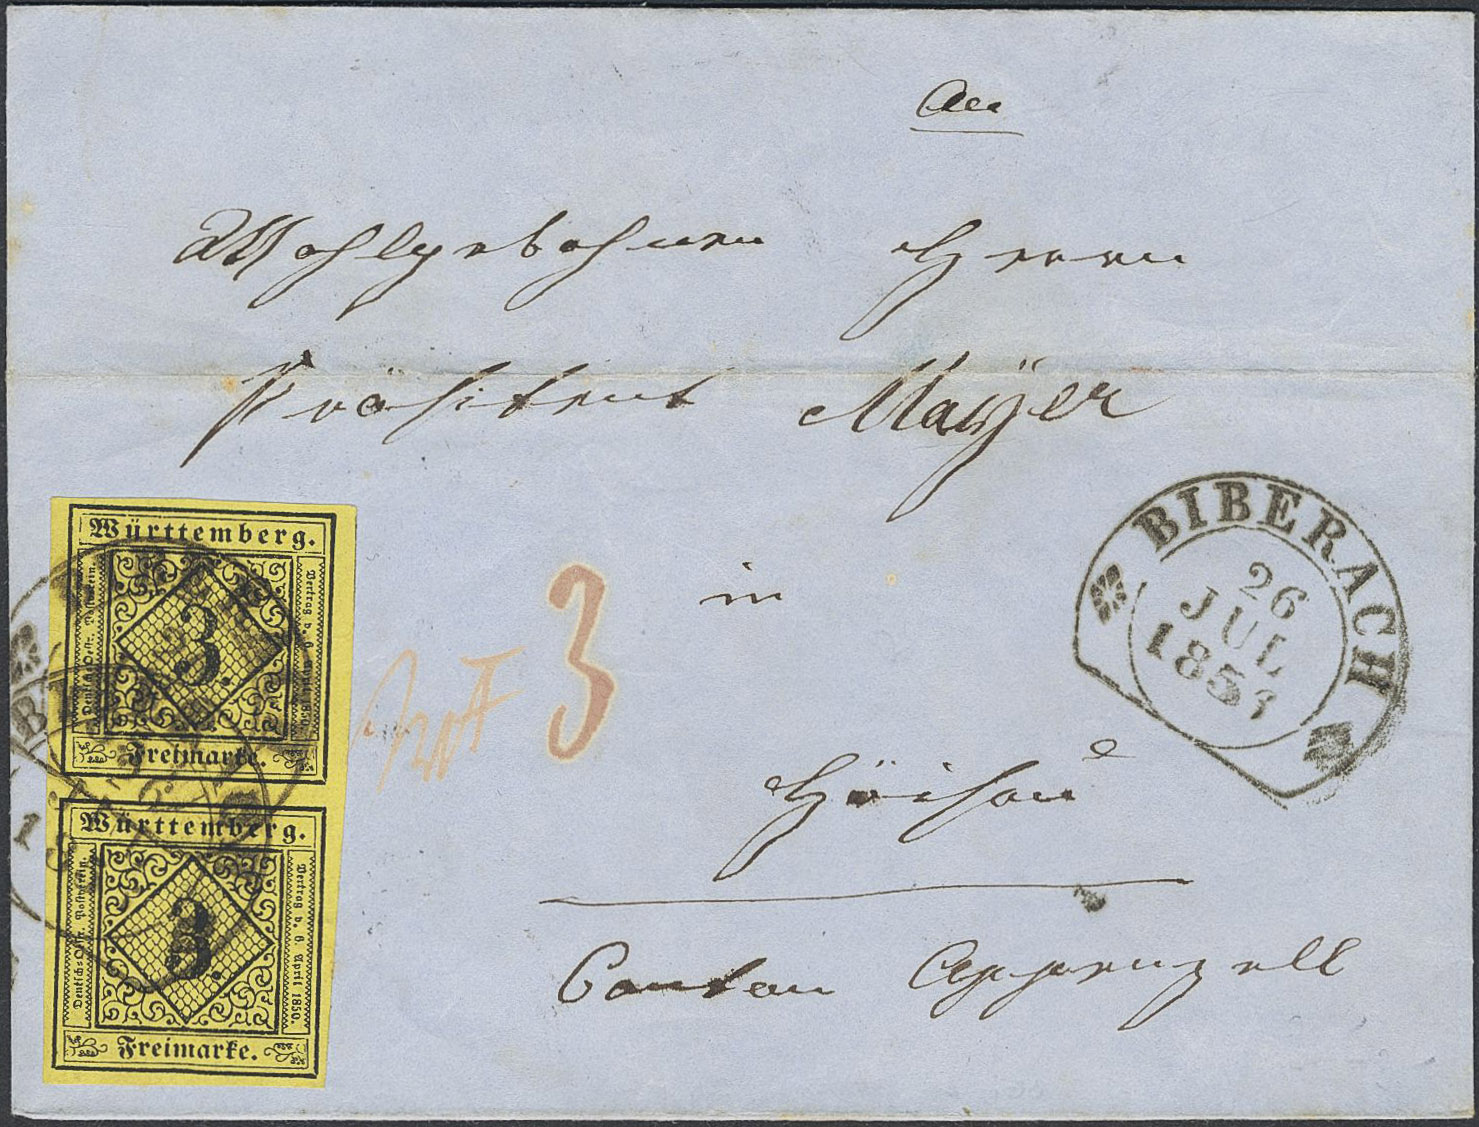 An
Wohlgebohrnen Herrn
Präsitent Mayer
in
Canton Appenzell
BIBERACH
26
JUL
1853
3
Württemberg.
Deutsch-Oestr. Postverein.
3.
Vertrag v. 6. April 1850.
Freimarke.
Württemberg.
Deutsch-Oestr. Postverein.
3.
Vertrag v. 6. April 1850.
Freimarke.